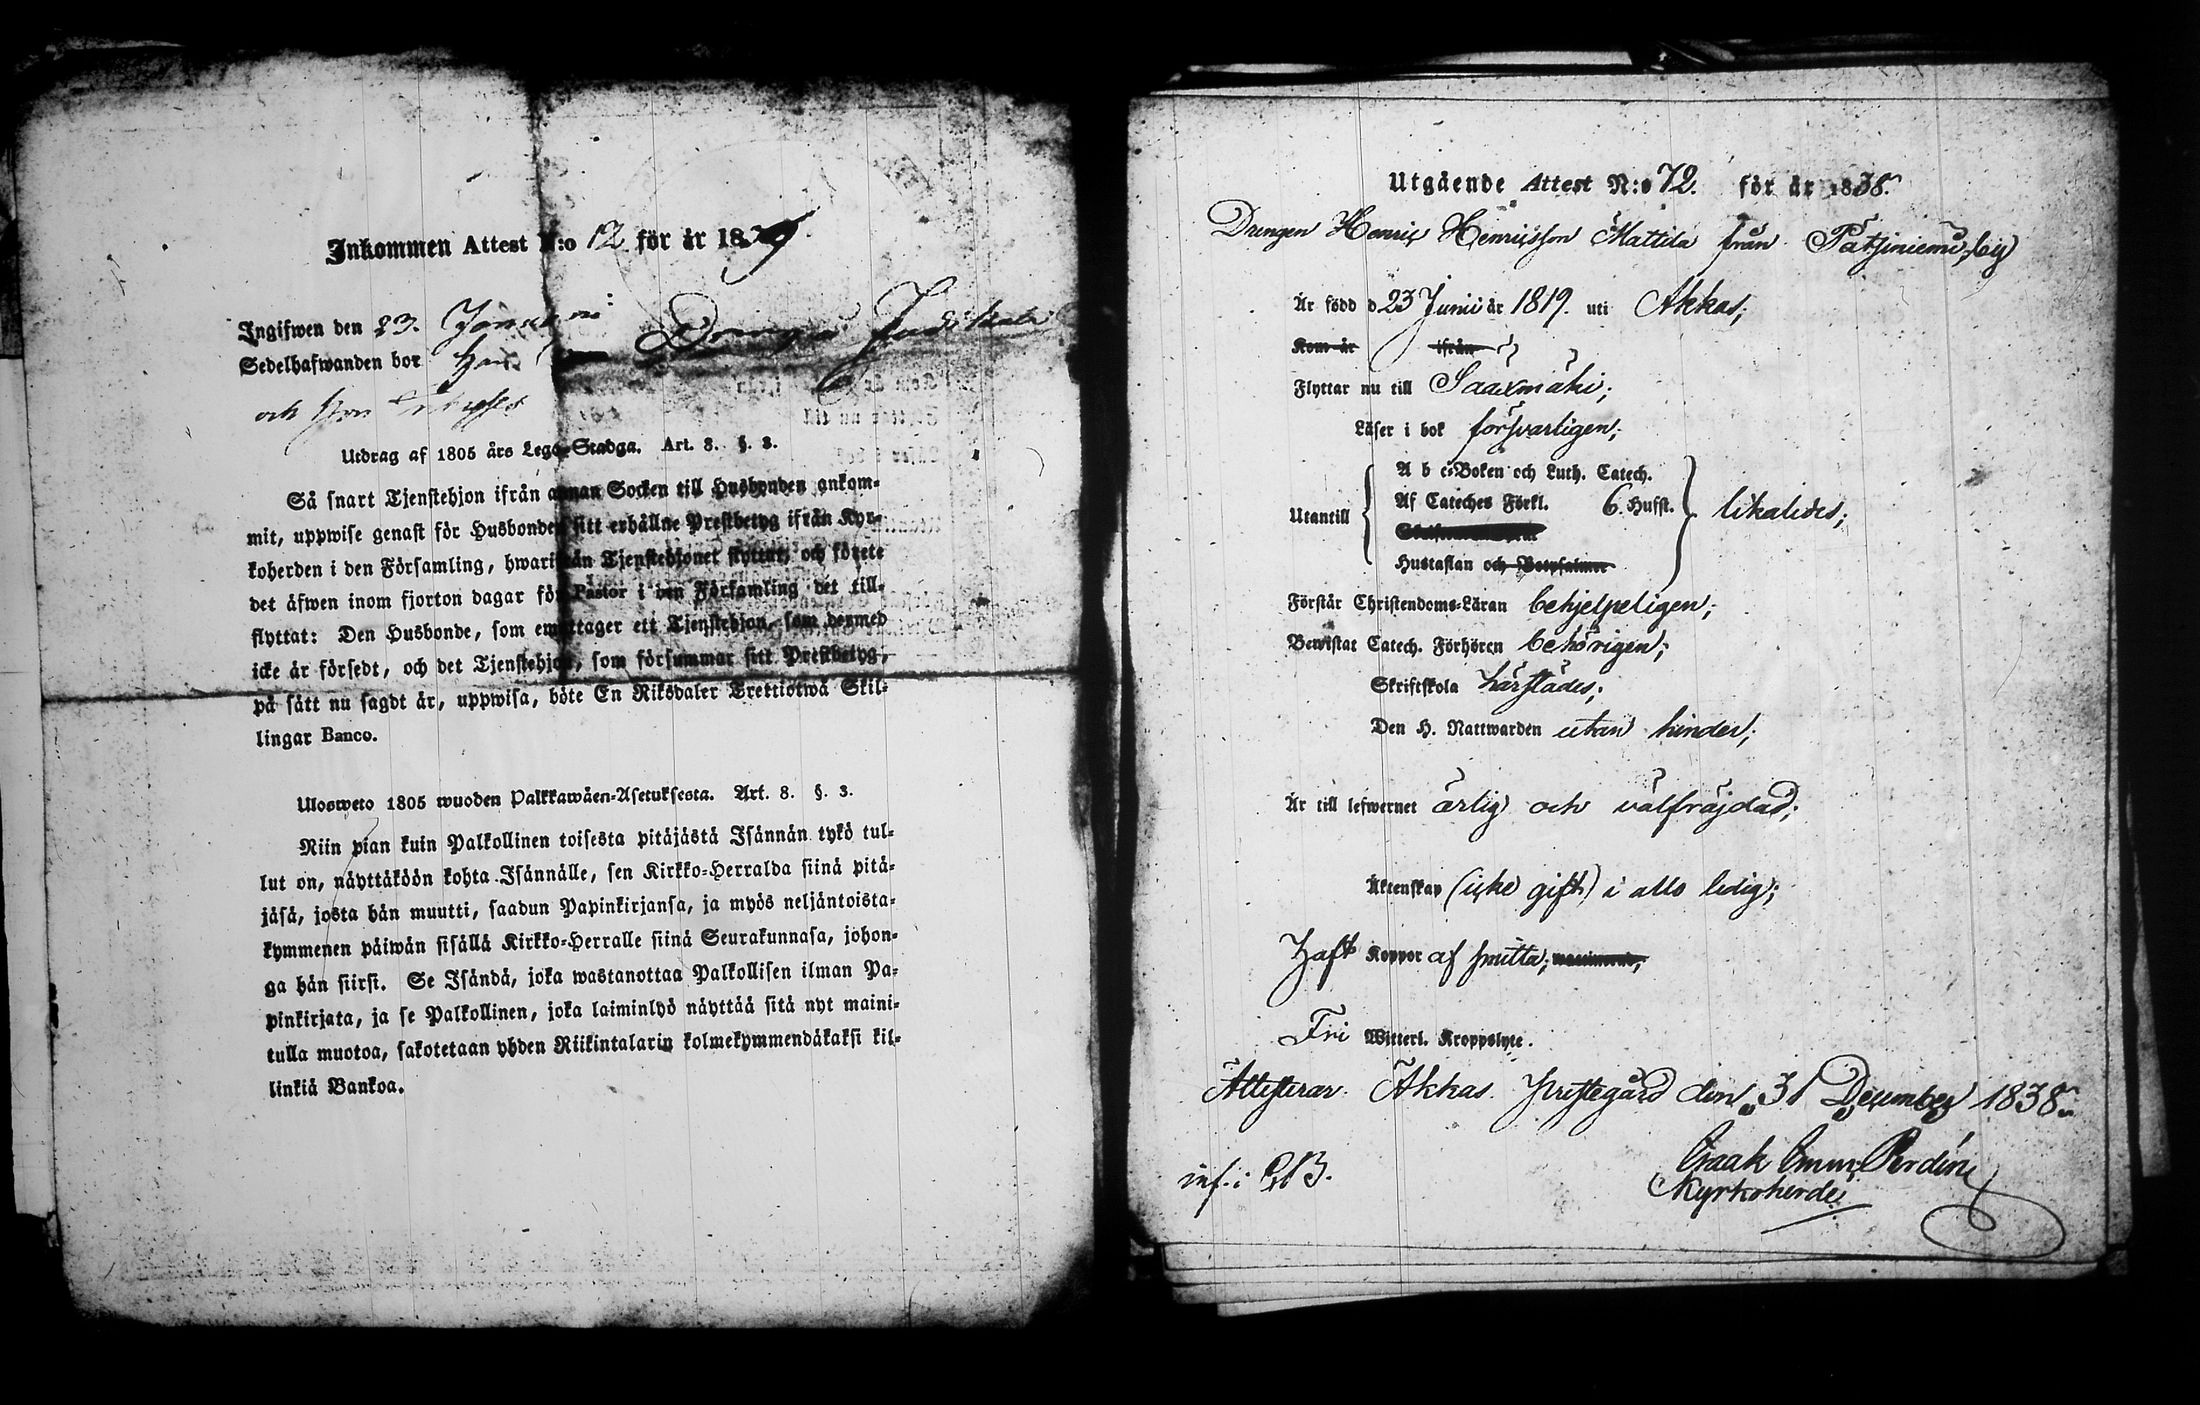 Inkommen Attest N:o 12 för år 1839
Ingifwen den 23. Januari
Sedelhafwanden bor
och
Utdrag af 1805 års Lego-Stadga. Art. 8. §. 3.
Så snart Tjenstehjon ifrån annan Socken till Husbonden ankom-
mit, uppwise genast för Husbonden sitt erhållne Prestbetyg ifrån Kyr-
koherden i den Församling, hwarifrån Tjenstehjonet flyttat, och förete
det äfwen inom fjorton dagar för Pastor i den Församling det till-
flyttat: Den Husbonde, som emottager ett Tjenstehjon, som dermed
icke är försedt, och det Tjenstehjon, som försummar sitt Prestbetyg,
på sätt nu sagdt är, uppwisa, böte En Riksdaler Trettiotwå Skil-
lingar Banco.
Ulosweto 1805 wuoden Palkkawäen-Asetuksesta. Art. 8. §. 3.
Niin pian kuin Palkollinen toisesta pitäjästä Isännän tykö tul-
lut on, näyttäköön kohta Isännälle, sen Kirkko-Herralda siinä pitä-
jäsä, josta hän muutti, saadun Papinkirjansa, ja myös neljäntoista-
kymmenen päiwän sisällä Kirkko-Herralle siinä Seurakunnasa, johon-
ga hän siirsi. Se Isändä, joka wastanottaa Palkollisen ilman Pa-
pinkirjata, ja se Palkollinen, joka laiminlyö näyttää sitä nyt maini-
tulla muotoa, sakotetaan yhden Riikintalarin kolmekymmendäkaksi kil-
linkiä Bankoa.
Utgående Attest N:o 72. för år 1838.
Drengen Henric Henricsson Mattila från Patjiniemi by
Är född d 23 Junii år 1819. uti Akkas;
Kom år ifrån
Flyttar nu till Sääxmäki;
Läser i bok försvarligen;
A b c-Boken och Luth. Catech.
Utantill Af Cateches Förkl. 6. Hufst. likaledes;
Hustaflan och Botpsalmer
Förstår Christendoms-Läran behjelpeligen;
Bewistat Catech. Förhören behörigen;
Skriftskola härstädes;
Den H. Nattwarden utan hinder;
Är till lefwernet ärlig och välfräjdad;
Äktenskap (icke gift) i allo ledig;
Haft Koppor af smitta;
Fri Witterl. Kroppslyte.
Attesterar Akkas Prestegård den 31 December 1838.
inf. i
Isaak Eman. Perdén
Kyrkoherde